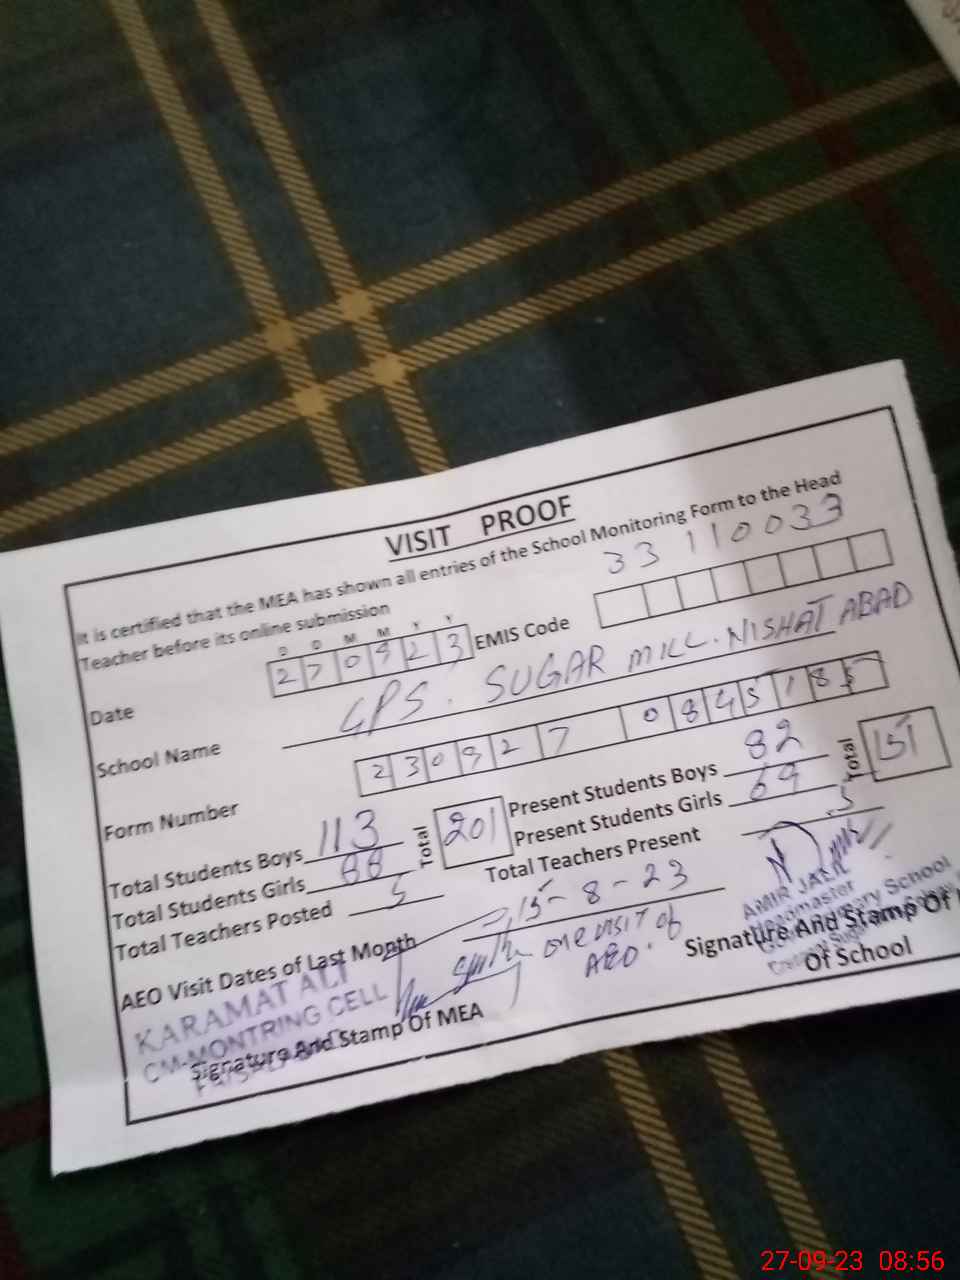 VISIT PROOF
It is certified that the MEA has shown all entries of the School Monitoring Form to the Head
Teacher before its online submission
33110033
D D M M Y Y
Date 270923 EMIS Code
School Name GPS. SUGAR MILL. NISHAT ABAD
Form Number 230927 0845185
Total Students Boys 113 Total 201 Present Students Boys 82 Total 151
Total Students Girls 88 Present Students Girls 69
Total Teachers Posted 5 Total Teachers Present 5
AEO Visit Dates of Last Month 15-8-23
one visit of
AEO.
KARAMAT ALI
CM-MONTRING CELL
Signature And Stamp Of MEA
AMIR JALIL
Headmaster
School
Signature And Stamp Of
Of School
27-09-23 08:56